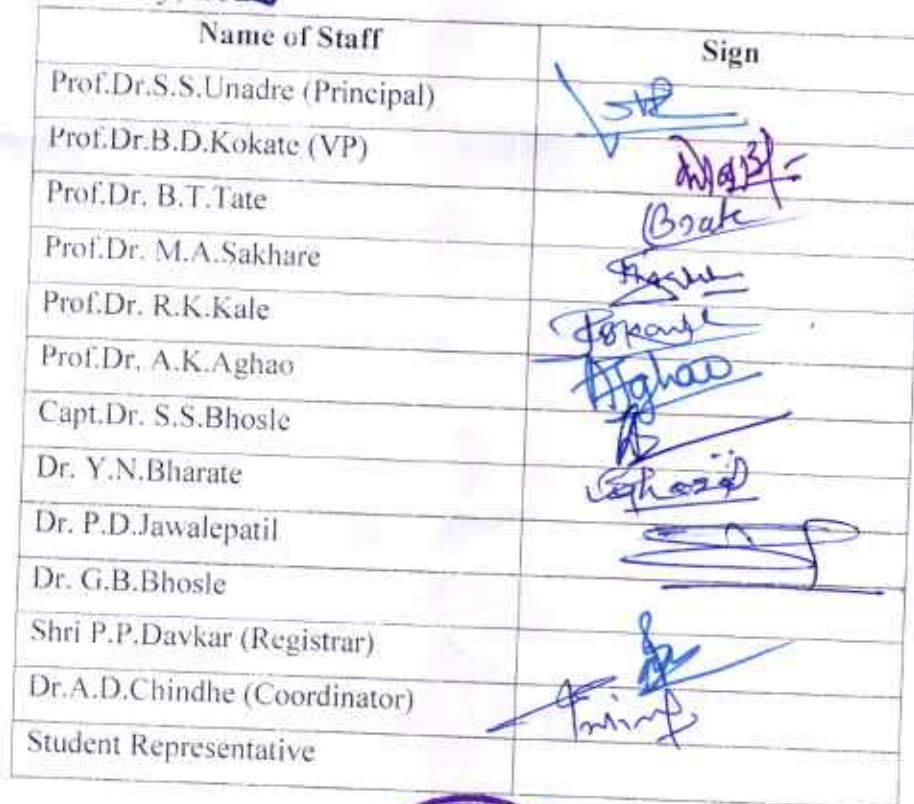 Name of Staff Sign
Prof.Dr.S.S.Unadre (Principal)
Prof.Dr.B.D.Kokate (VP)
Prof.Dr. B.T.Tate
Prof.Dr. M.A.Sakhare
Prof.Dr. R.K.Kale
Prof.Dr. A.K.Aghao Aghao
Capt.Dr. S.S.Bhosle
Dr. Y.N.Bharate
Dr. P.D.Jawalepatil
Dr. G.B.Bhosle
Shri P.P.Davkar (Registrar)
Dr.A.D.Chindhe (Coordinator)
Student Representative